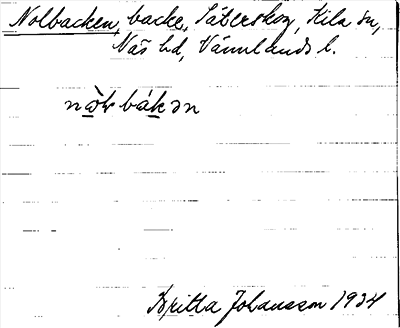 Nolbacken, backe, Säterskog, Kila sn,
Näs hd, Värmlands l.
Britta Johansson 1934